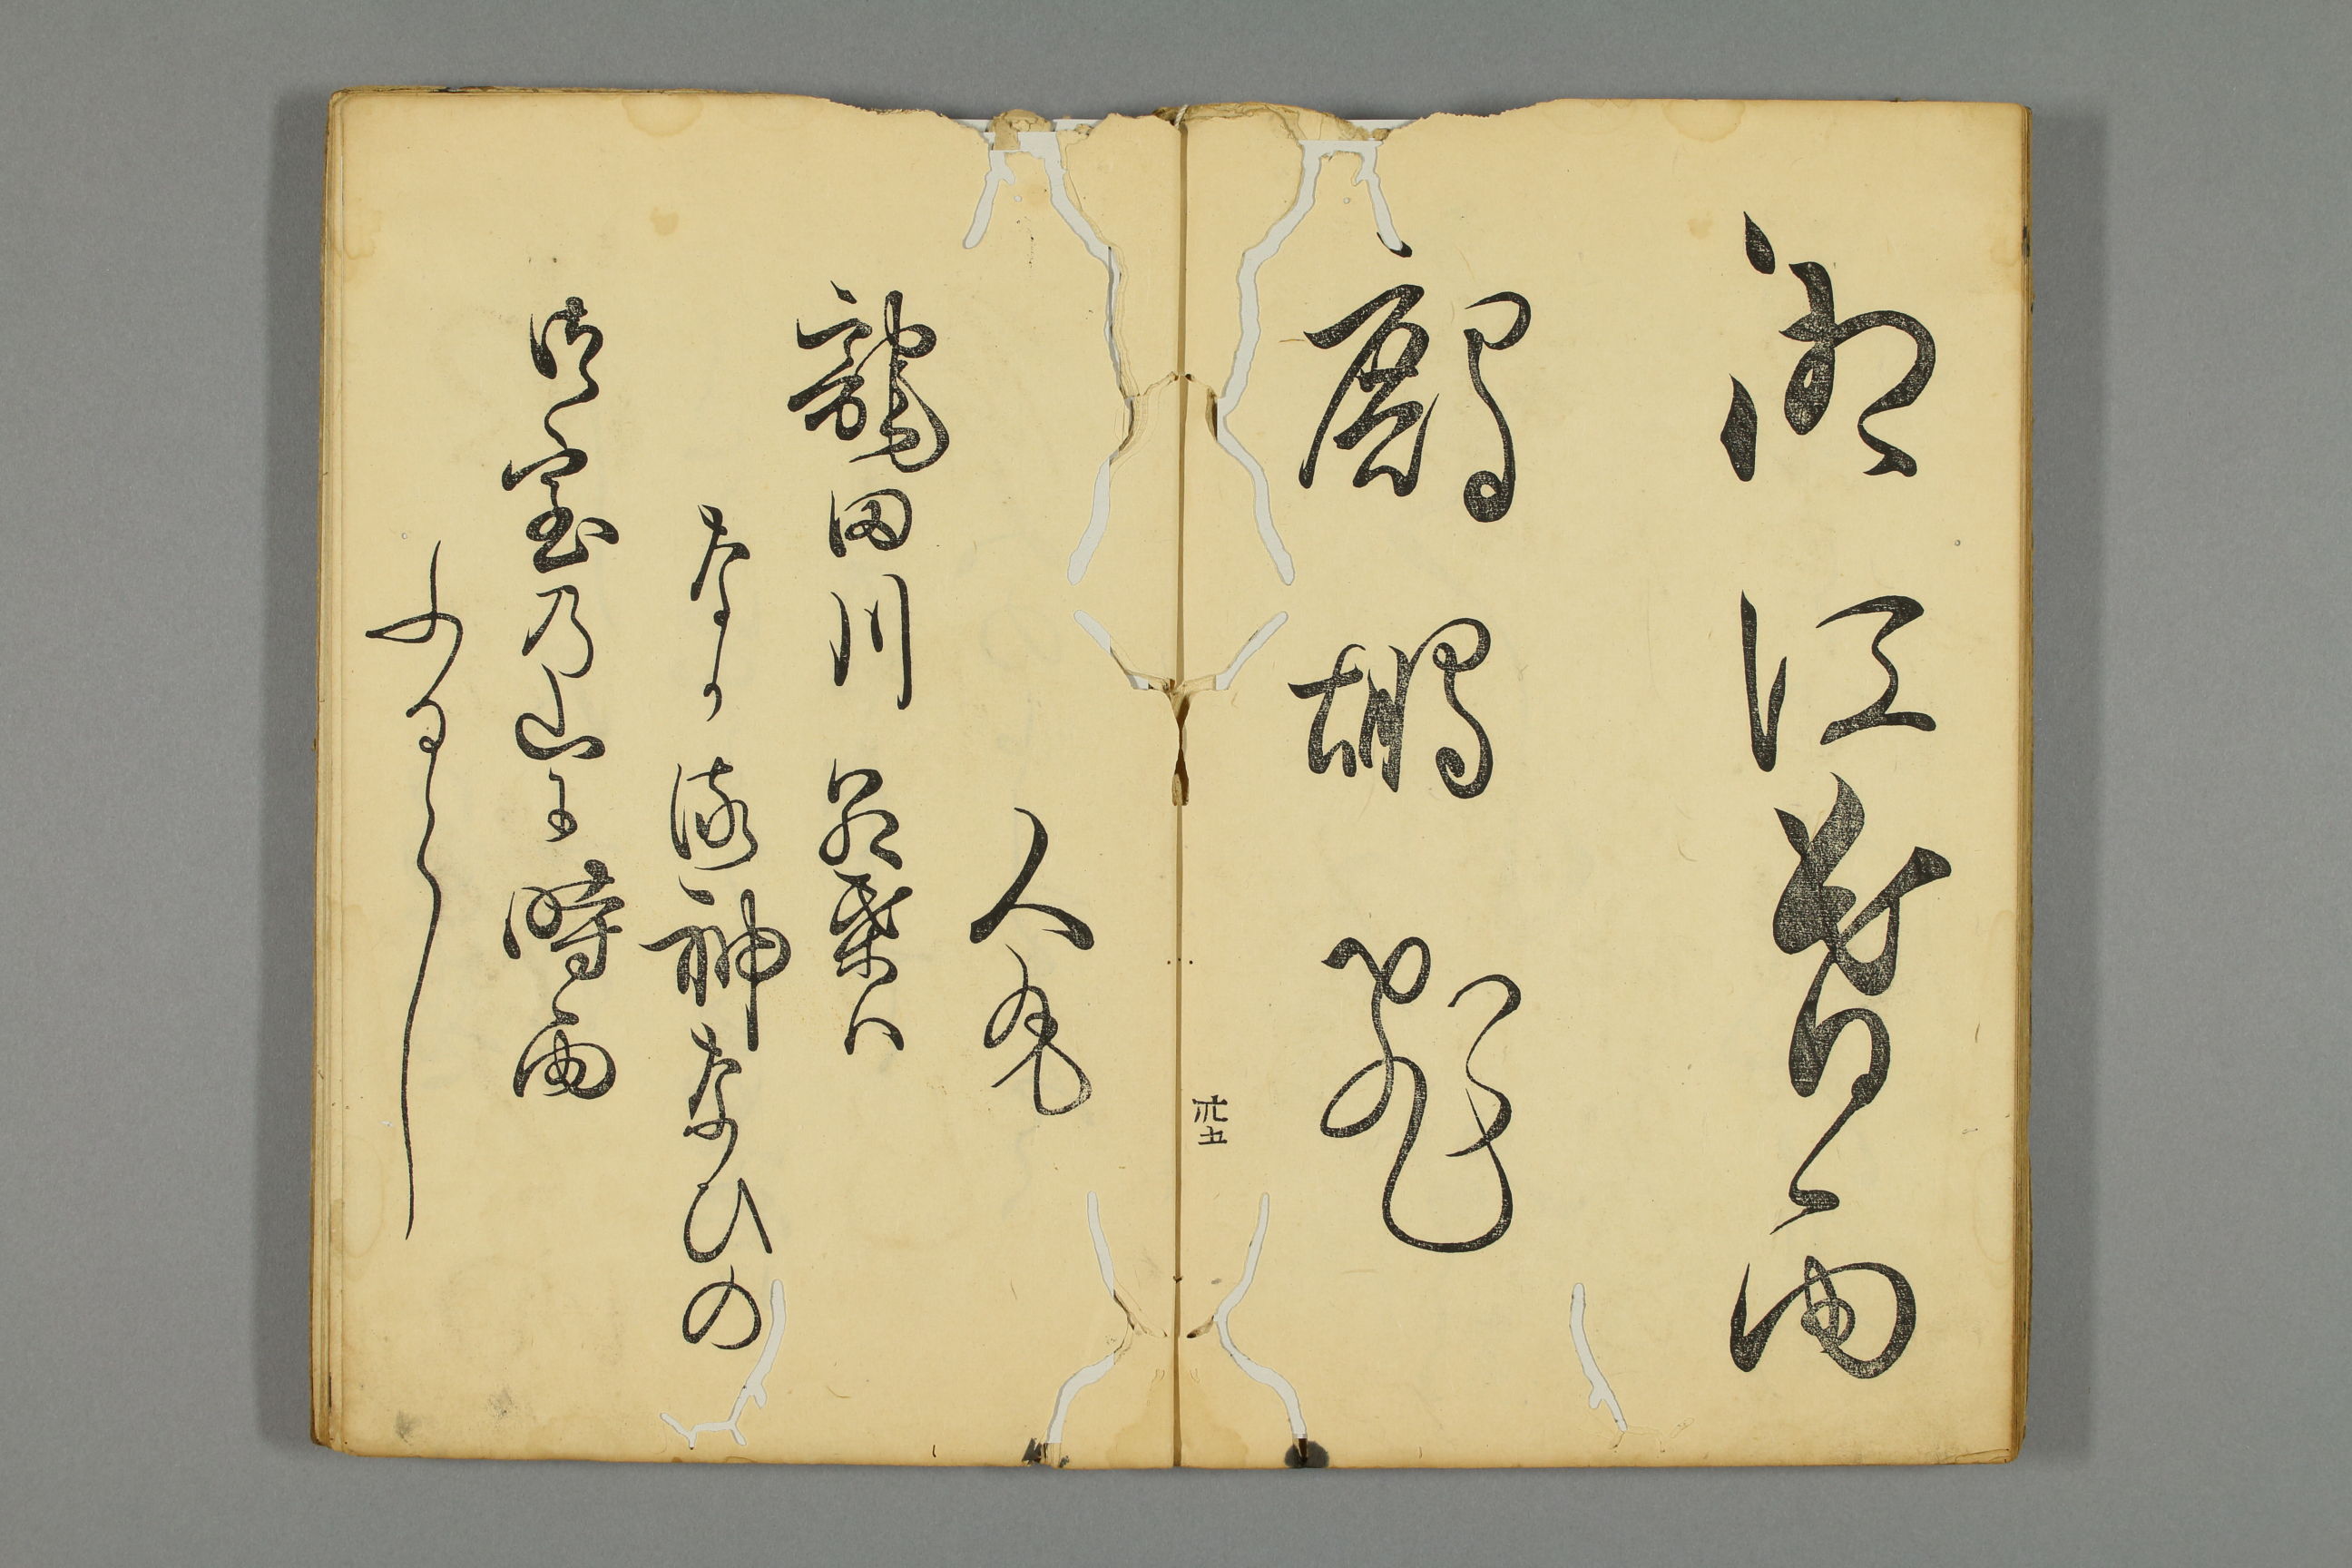 湘江暮雨
鷓鴣飛
人丸
龍田川紅葉ハ
なかる神なひの
御室乃山に時雨
ふるらし